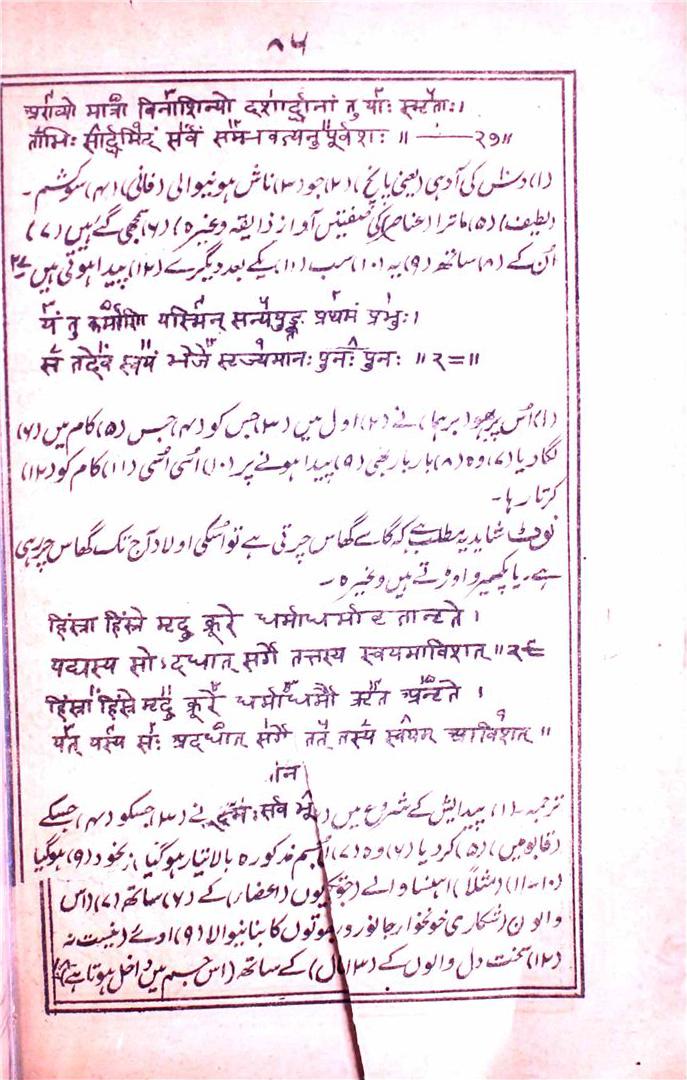 १५
अराव्यो मात्रा विनाशिन्यो दशार्द्धानां तु याः स्मृताः।
ताभिः सार्द्धमिदं सर्वं सम्भवत्यनुपूर्वशः ॥ —— २७॥
(۱) دس کی آدہی (یعنی پانچ) (۲) جو (۳) ناش ہونیوالی (فانی) (۴) سوکشم۔
(لطیف) (۵) ماترا (عناصر کی صفیتں آواز ذایقہ وغیرہ) (۶) کہی گئے ہیں (۷)
اُن کے (۸) ساتھ (۹) یہ (۱۰) سب (۱۱) یکے بعد دیگرے (۱۲) پیدا ہوتی ہیں ۲۷
यं तु कर्माणि यस्मिन् सन्ययुङ्क्त प्रथमं प्रभुः।
स तदेव स्वयं भेजे सृज्यमानः पुनः पुनः ॥२८॥
(۱) اُس پربھو (برہما) نے (۲) اول میں (۳) جس کو (۴) جس (۵) کام میں (۶)
لگا دیا (۷) وہ (۸) بار بار بھی (۹) پیدا ہونے پر (۱۰) اُسی اُسی (۱۱) کام کو (۱۲)
کرتا رہا۔
نوٹ شاید یہ مطلب ہے کہ گائے گھاس چرتی ہے تو اسکی اولاد آج تک گھاس چر رہی
ہے۔ یا پکھیرو اوڑتے ہیں وغیرہ۔
हिंस्रा हिंस्रे मृदु क्रूरे धर्माधर्मा वृतानृते ।
यद्यस्य सोऽदधात् सर्गे तत्तस्य स्वयमाविशत्॥२९
हिंस्रा हिंस्रे मृदु क्रूरे धर्माधर्मौ ऋत अनृते ।
यत् यस्य सः अदधात् सर्गे तत् तस्य स्वयम् आविशत् ॥
ترجمہ۔ (۱) پیدایش کے شروع میں نے (۳) جسکو (۴) جسکے
(قابو میں) (۵) کر دیا (۶) وہ (۷) مذکورہ بالا تیار ہو گیا (۸) بخود (۹) ہو گیا
(۱۰-۱۱) (مثلاً) اہنسا والے (اعضا) کے (۶) ساتھ (۷) اس
والون (شکاری خونخوار جانور و کا بنانیوالا (۹)
(۱۲) سخت دل والوں کے (۱۳) کے ساتھ (اس جسم میں داخل ہوتا ہے)